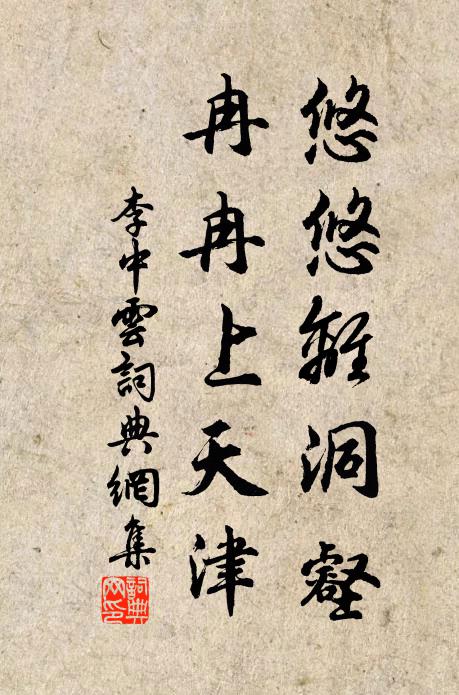 悠悠離洞壑
冉冉上天津
李中雲詞典網集
詞典
网印